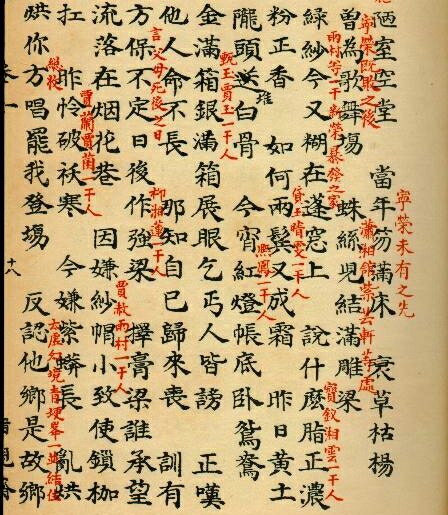 陋室空堂　當年笏滿床　衰草枯楊
寧榮未有之先
曾為歌舞塲　蛛絲兒結滿雕梁
寧榮既敗之後
瀟湘館紫芸軒等處
綠紗今又糊在蓬窓上　說什麽脂正濃
雨村等一干新榮暴發之家
寶釵湘雲一干人
粉正香　如何兩鬓又成霜　昨日黃土
貸玉晴雯一干人
隴頭送白骨　今宵紅燈帳底卧鴛鴦
堆
熙鳳一干人
金滿箱銀滿箱展眼乞丐人皆謗　正嘆
甄玉賈玉一干人
他人命不長　那知自己歸來喪　訓有
方保不定日後作強梁　擇膏梁誰承望
言父母死後之日
柳湘蓮一干人
流落在烟花巷　因嫌紗帽小致使鎖枷
賈赦雨村一干人
扛　昨怜破袄寒　今嫌紫蟒長　亂烘
賈蘭賈菌一干人
烘你方唱罷我登塲　反認他鄉是故鄉
總收
太虛幻境青埂峯一並結住
十八